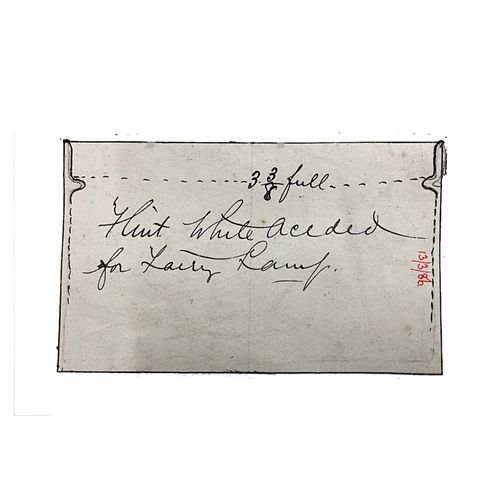 3 3/8 full
Flint White Acided
for Fairy Lamp.
13/3/86